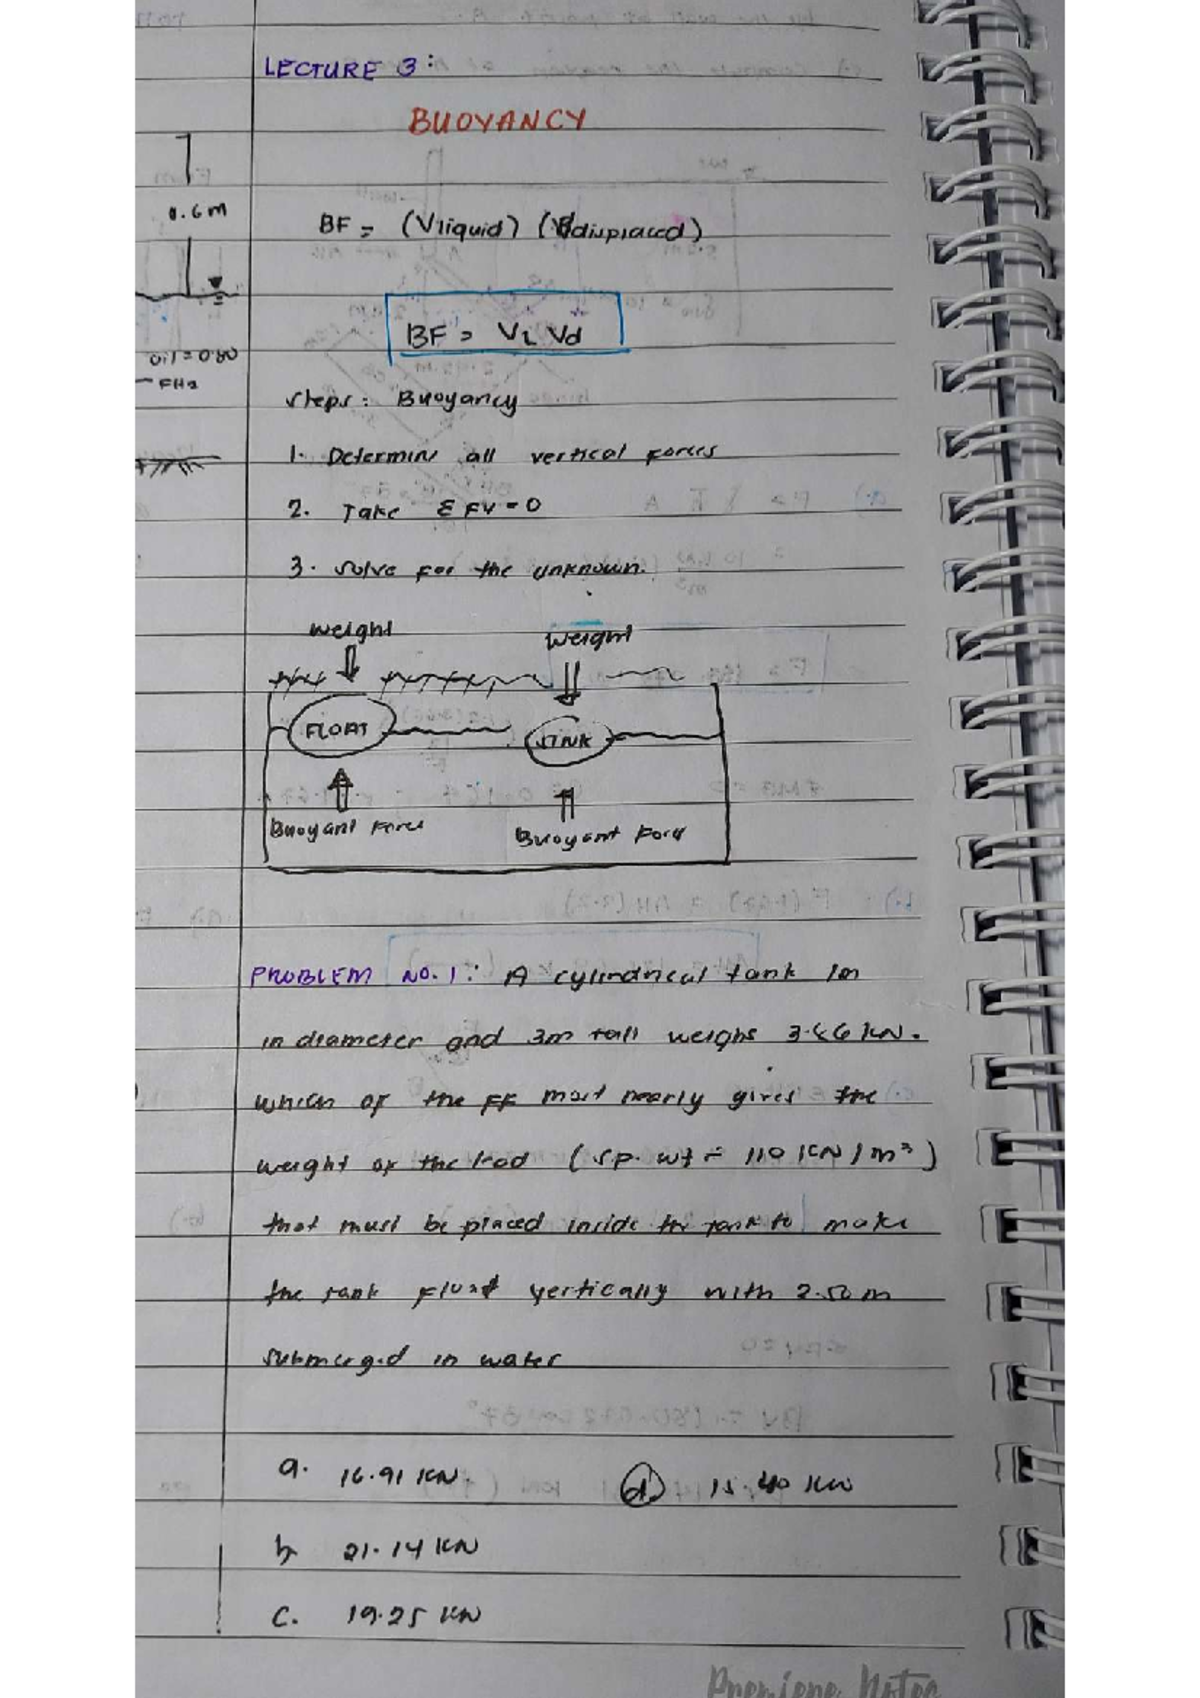 LECTURE 3:
BUOYANCY
0.6m
BF = (Vliquid) (Vdisplaced)
BF = VL Vd
oil = 0.80
FH2
Steps: Buoyancy
1. Determine all vertical forces
2. Take ΣFV = 0
3. Solve for the unknown.
weight weight
FLOAT SINK
Buoyant Force Buoyant Force
PROBLEM NO. 1: A cylindrical tank 1m
in diameter and 3m tall weighs KN.
which of the FF most nearly gives the
weight of the lead (sp. wt = 110 KN/m³)
that must be placed inside the tank to make
the tank float vertically with 2.50 m
submerged in water
a. 16.91 KN
d. 15.40 KN
b 21.14 KN
c. 19.25 KN
Premiere Notes